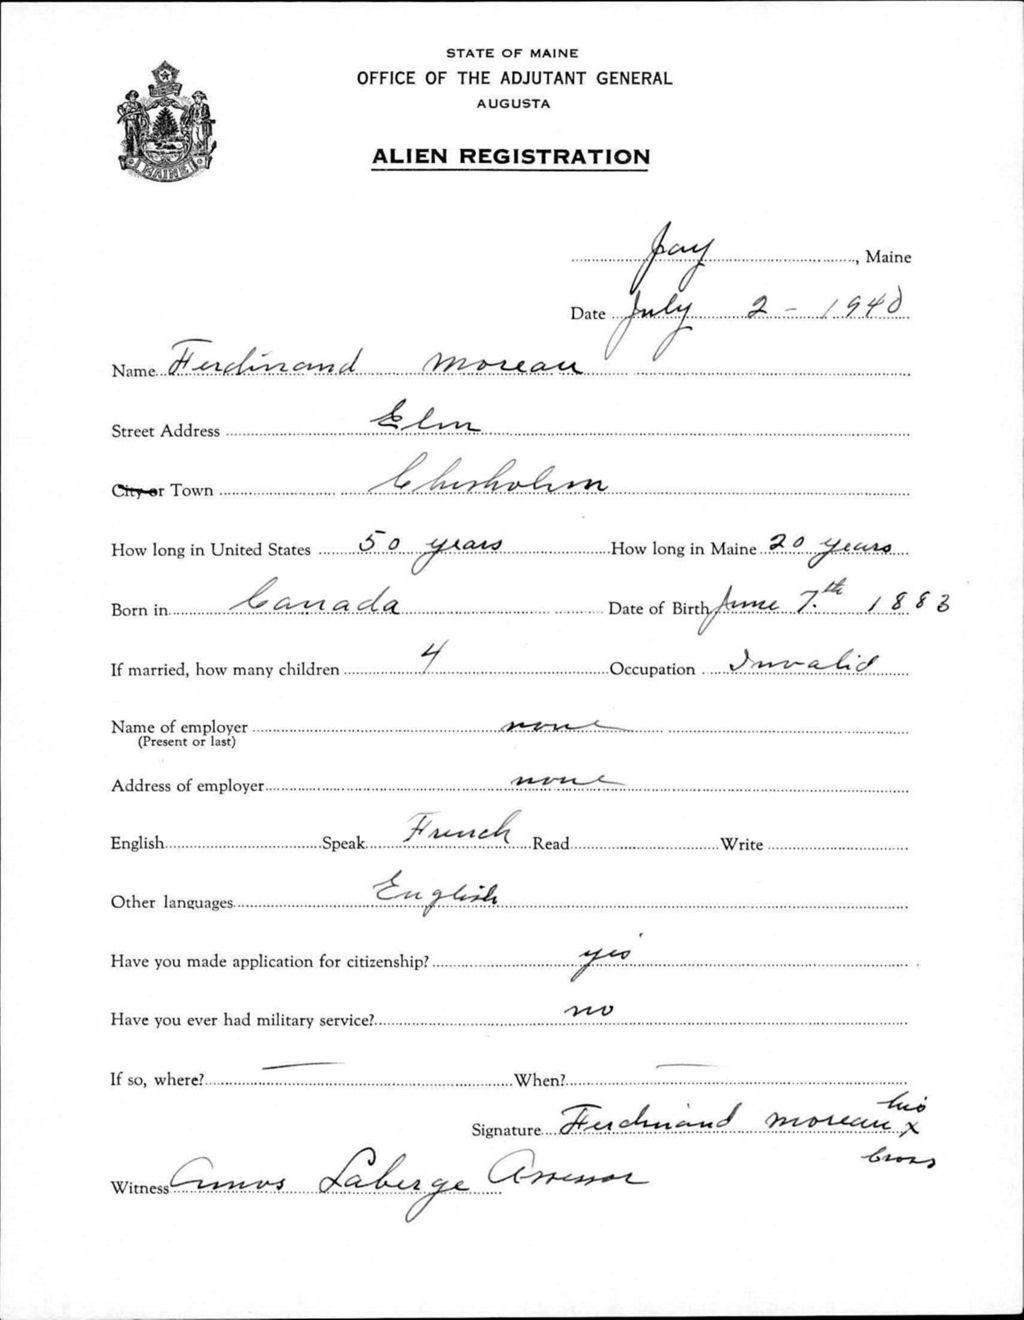 STATE OF MAINE
OFFICE OF THE ADJUTANT GENERAL
AUGUSTA
ALIEN REGISTRATION
MAINE
Jay, Maine
Date July 2 - 1940
Name Ferdinand Moreau
Street Address Elm
City or Town Chisholm
How long in United States 50 years How long in Maine 20 years
Born in Canada Date of Birth June 7.th 1883
If married, how many children 4 Occupation Invalid
Name of employer none
(Present or last)
Address of employer none
English Speak French Read Write
Other languages English
Have you made application for citizenship? yes
Have you ever had military service? no
If so, where? — When? —
his
Signature Ferdinand Moreau x
cross
Witness Amos Laberge Assessor